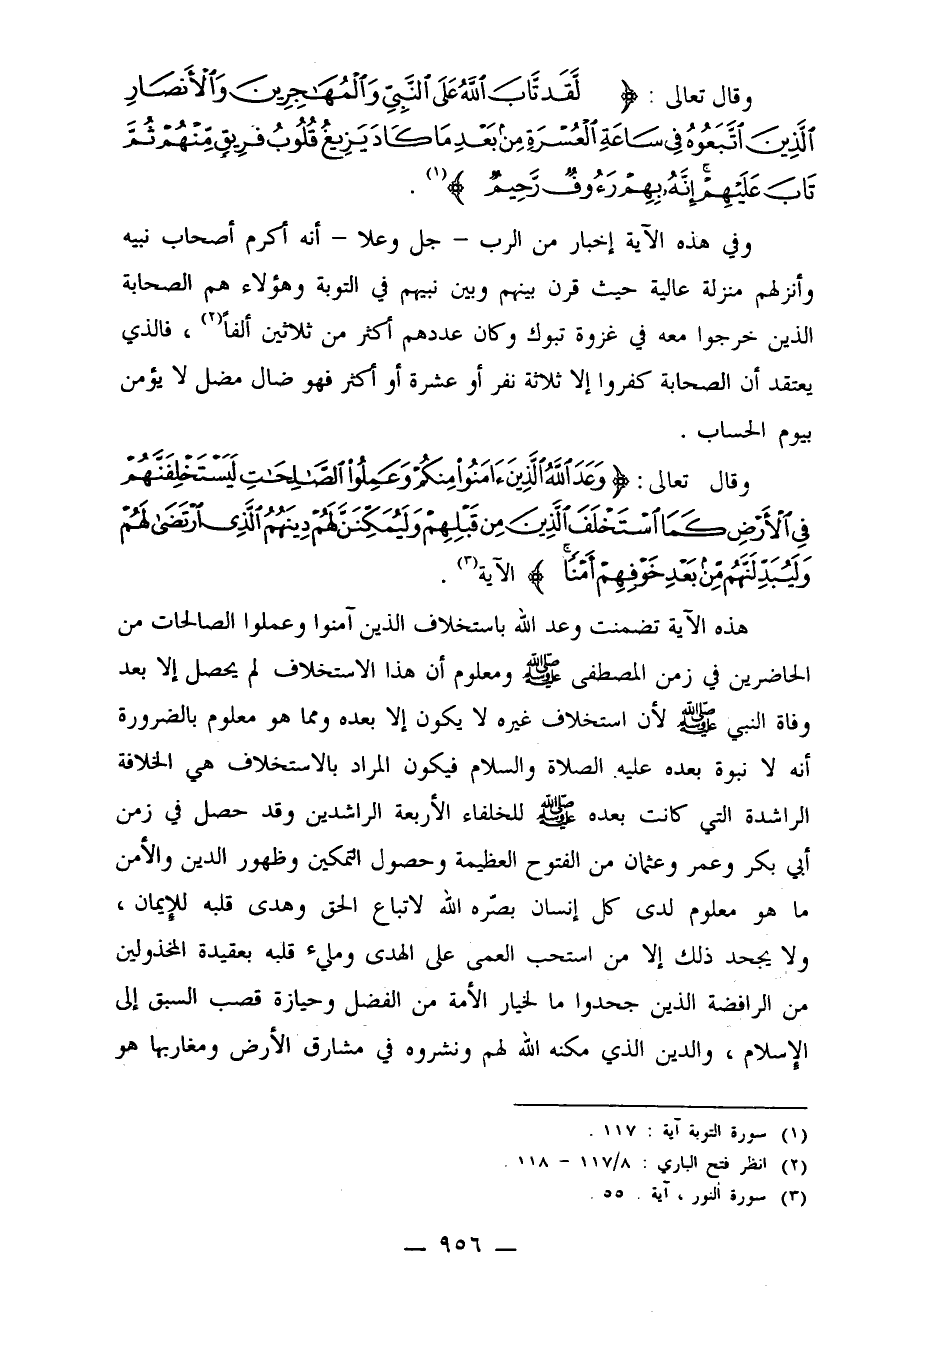 وقال تعالى : ﴿ لَّقَد تَّابَ ٱللَّهُ عَلَى ٱلنَّبِيِّ وَٱلْمُهَٰجِرِينَ وَٱلْأَنصَارِ
ٱلَّذِينَ ٱتَّبَعُوهُ فِي سَاعَةِ ٱلْعُسْرَةِ مِنۢ بَعْدِ مَا كَادَ يَزِيغُ قُلُوبُ فَرِيقٍ مِّنْهُمْ ثُمَّ
تَابَ عَلَيْهِمْ ۚ إِنَّهُۥ بِهِمْ رَءُوفٌ رَّحِيمٌ ﴾(١) .
وفي هذه الآية إخبار من الرب - جل وعلا - أنه أكرم أصحاب نبيه
وأنزلهم منزلة عالية حيث قرن بينهم وبين نبيهم في التوبة وهؤلاء هم الصحابة
الذين خرجوا معه في غزوة تبوك وكان عددهم أكثر من ثلاثين ألفاً(٢) ، فالذي
يعتقد أن الصحابة كفروا إلا ثلاثة نفر أو عشرة أو أكثر فهو ضال مضل لا يؤمن
بيوم الحساب .
وقال تعالى : ﴿ وَعَدَ ٱللَّهُ ٱلَّذِينَ ءَامَنُوا۟ مِنكُمْ وَعَمِلُوا۟ ٱلصَّٰلِحَٰتِ لَيَسْتَخْلِفَنَّهُمْ
فِي ٱلْأَرْضِ كَمَا ٱسْتَخْلَفَ ٱلَّذِينَ مِن قَبْلِهِمْ وَلَيُمَكِّنَنَّ لَهُمْ دِينَهُمُ ٱلَّذِي ٱرْتَضَىٰ لَهُمْ
وَلَيُبَدِّلَنَّهُم مِّنۢ بَعْدِ خَوْفِهِمْ أَمْنًا ۚ ﴾ الآية(٣) .
هذه الآية تضمنت وعد الله باستخلاف الذين آمنوا وعملوا الصالحات من
الحاضرين في زمن المصطفى ﷺ ومعلوم أن هذا الاستخلاف لم يحصل إلا بعد
وفاة النبي ﷺ لأن استخلاف غيره لا يكون إلا بعده ومما هو معلوم بالضرورة
أنه لا نبوة بعده عليه الصلاة والسلام فيكون المراد بالاستخلاف هي الخلافة
الراشدة التي كانت بعده ﷺ للخلفاء الأربعة الراشدين وقد حصل في زمن
أبي بكر وعمر وعثمان من الفتوح العظيمة وحصول التمكين وظهور الدين والأمن
ما هو معلوم لدى كل إنسان بصّره الله لاتباع الحق وهدى قلبه للإيمان ،
ولا يجحد ذلك إلا من استحب العمى على الهدى وملىء قلبه بعقيدة المخذولين
من الرافضة الذين جحدوا ما لخيار الأمة من الفضل وحيازة قصب السبق إلى
الإسلام ، والدين الذي مكنه الله لهم ونشروه في مشارق الأرض ومغاربها هو
(١) سورة التوبة آية : ١١٧ .
(٢) انظر فتح الباري : ١١٧/٨ - ١١٨ .
(٣) سورة النور ، آية . ٥٥ .
— ٩٥٦ —